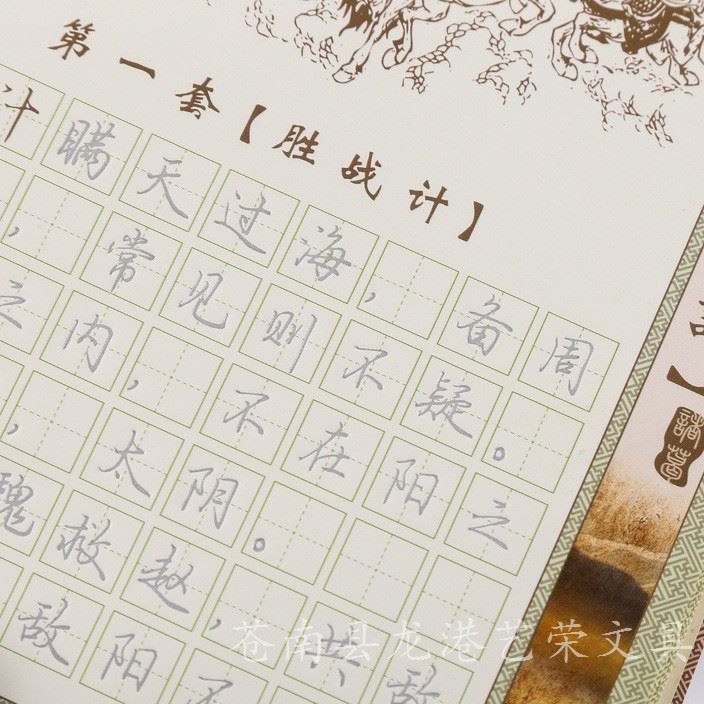 第一套【胜战计】
计 瞒天过海,备周
,常见则不疑。
之内,不在阳之
,太阴。
魏救赵,共敌
敌阳不
】
苍南县龙港艺荣文具